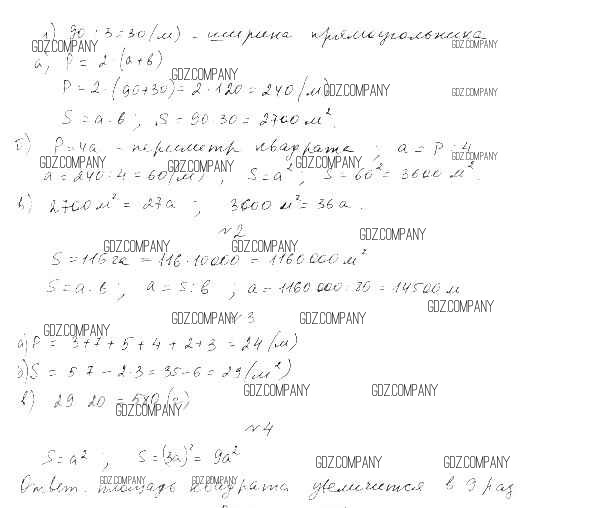 1) 90 : 3 = 30 (м) - ширина прямоугольника
GDZ.COMPANY GDZ.COMPANY
а) P = 2 · (а+в)
GDZ.COMPANY
P = 2 · (90+30) = 2 · 120 = 240 (м)
GDZ.COMPANY GDZ.COMPANY
S = а · в ; S = 90 · 30 = 2700 м².
б) P = 4а - периметр квадрата ; а = P : 4
GDZ.COMPANY GDZ.COMPANY GDZ.COMPANY GDZ.COMPANY
а = 240 : 4 = 60 (м) ; S = а² ; S = 60² = 3600 м².
в) 2700 м² = 27а ; 3600 м² = 36а .
№2
GDZ.COMPANY
GDZ.COMPANY GDZ.COMPANY
S = 116 га = 116 · 10000 = 1160000 м²
S = а · в ; а = S : в ; а = 1160000 : 80 = 14500 м
GDZ.COMPANY
№3
GDZ.COMPANY GDZ.COMPANY
GDZ.COMPANY
а) P = 3 + 7 + 5 + 4 + 2 + 3 = 24 (м)
б) S = 5 · 7 - 2 · 3 = 35 - 6 = 29 (м²)
GDZ.COMPANY GDZ.COMPANY
в) 29 · 20 = 580 (г)
GDZ.COMPANY
№4
S = а² ; S = (3а)² = 9а²
GDZ.COMPANY GDZ.COMPANY
Ответ. площадь квадрата увеличится в 9 раз
GDZ.COMPANY GDZ.COMPANY